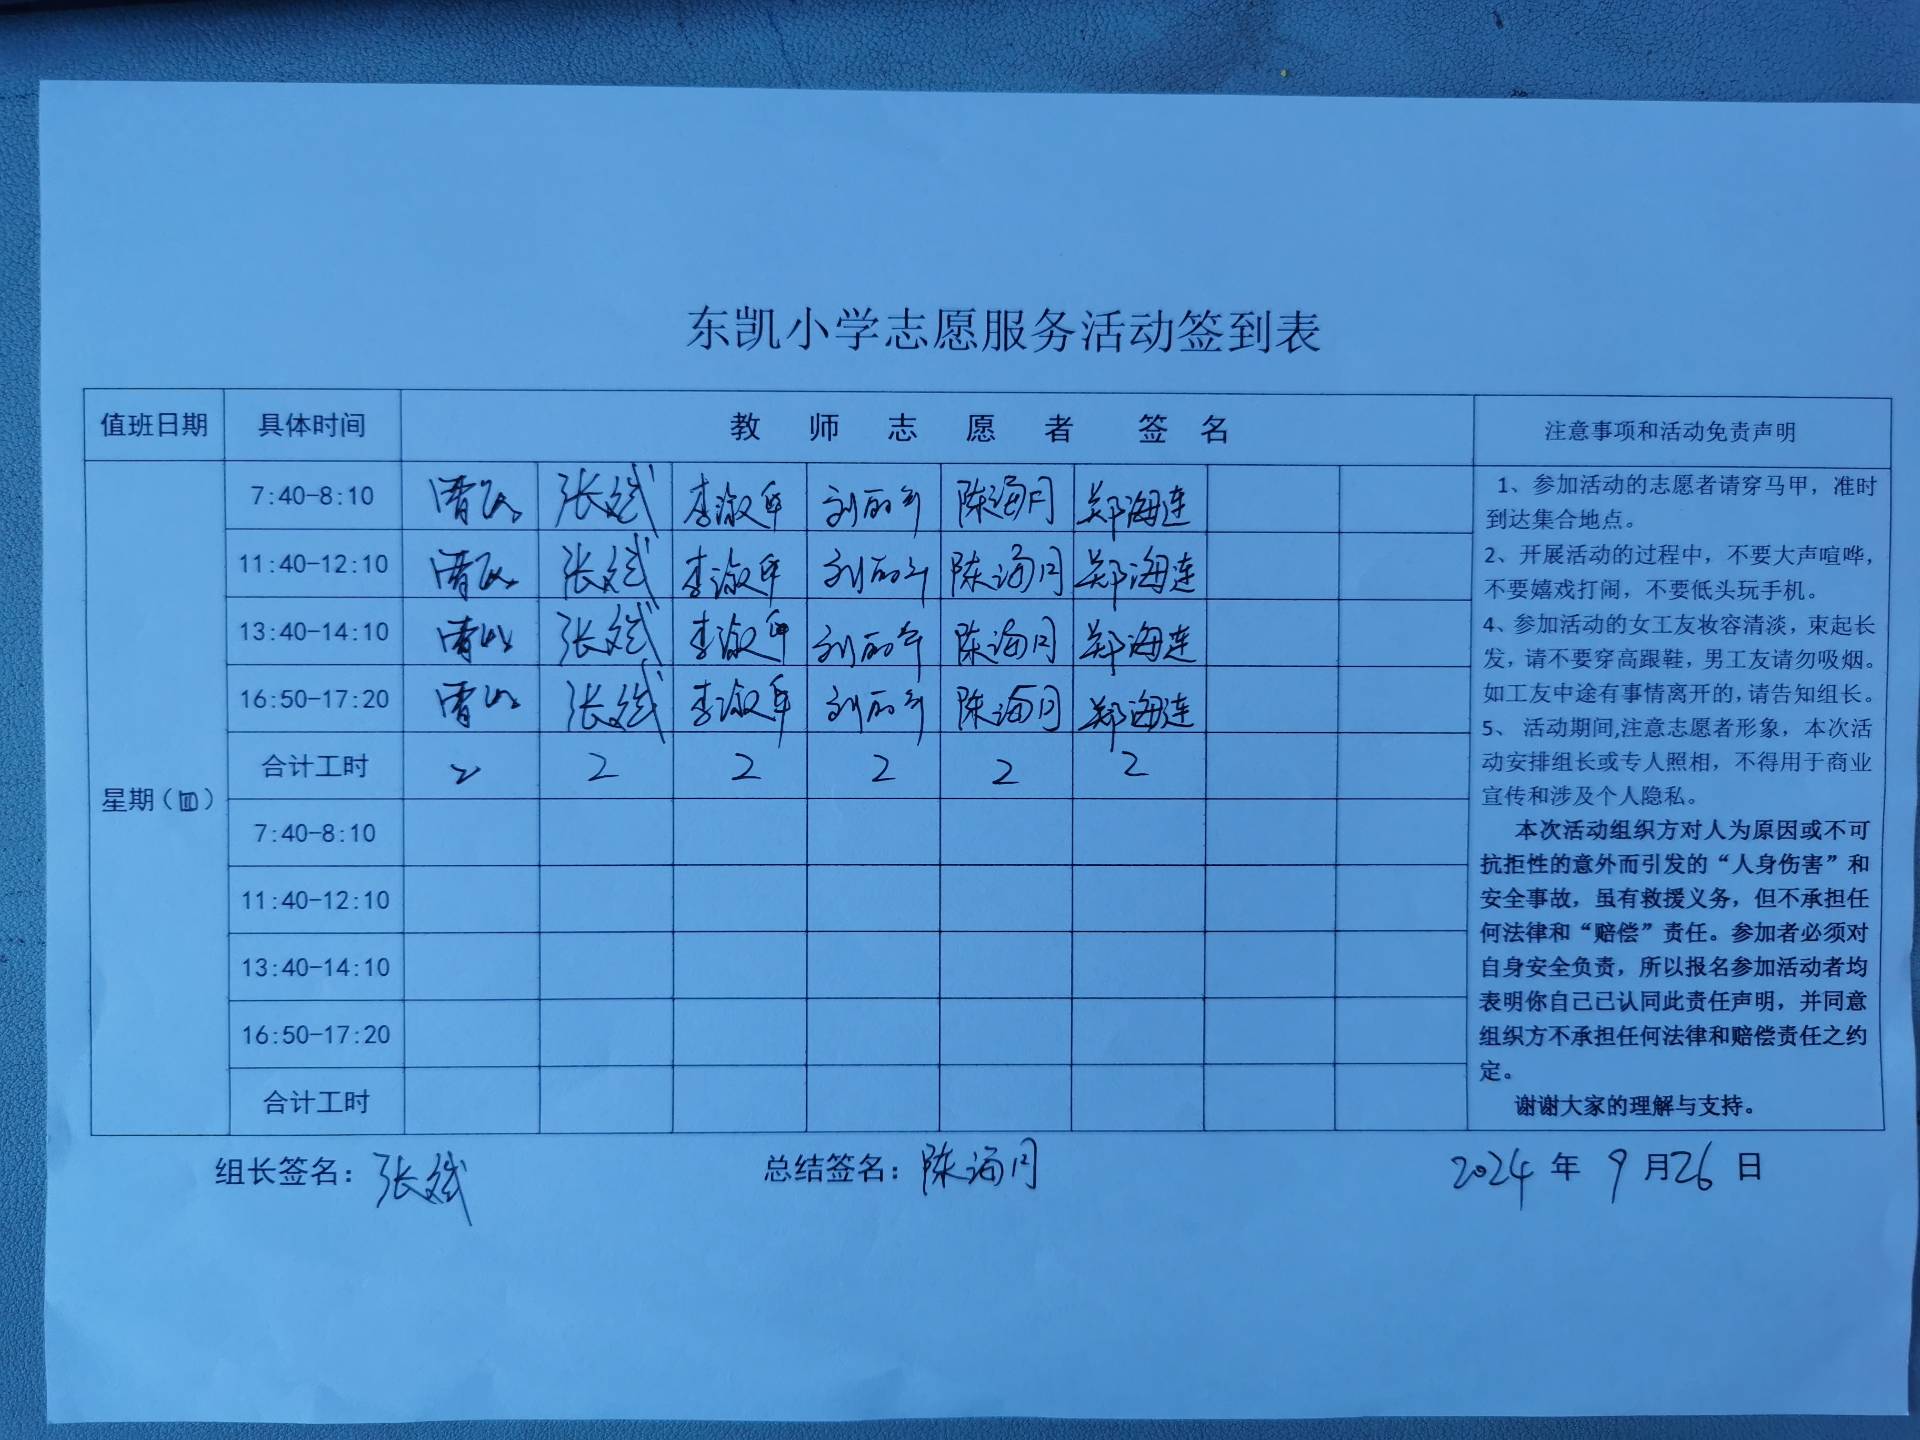 东凯小学志愿服务活动签到表
值班日期 具体时间 教 师 志 愿 者 签 名 注意事项和活动免责声明
星期(四)
7:40-8:10 张斌 李淑 刘丽 陈海 郑海连
11:40-12:10 张斌 李淑 刘丽 陈海 郑海连
13:40-14:10 张斌 李淑 刘丽 陈海 郑海连
16:50-17:20 张斌 李淑 刘丽 陈海 郑海连
合计工时 2 2 2 2 2 2
7:40-8:10
11:40-12:10
13:40-14:10
16:50-17:20
合计工时
1、参加活动的志愿者请穿马甲，准时
到达集合地点。
2、开展活动的过程中，不要大声喧哗，
不要嬉戏打闹，不要低头玩手机。
4、参加活动的女工友妆容清淡，束起长
发，请不要穿高跟鞋，男工友请勿吸烟。
如工友中途有事情离开的，请告知组长。
5、 活动期间,注意志愿者形象，本次活
动安排组长或专人照相，不得用于商业
宣传和涉及个人隐私。
本次活动组织方对人为原因或不可
抗拒性的意外而引发的“人身伤害”和
安全事故，虽有救援义务，但不承担任
何法律和“赔偿”责任。参加者必须对
自身安全负责，所以报名参加活动者均
表明你自己已认同此责任声明，并同意
组织方不承担任何法律和赔偿责任之约
定。
谢谢大家的理解与支持。
组长签名：张斌 总结签名：陈海 2024 年 9 月 26 日